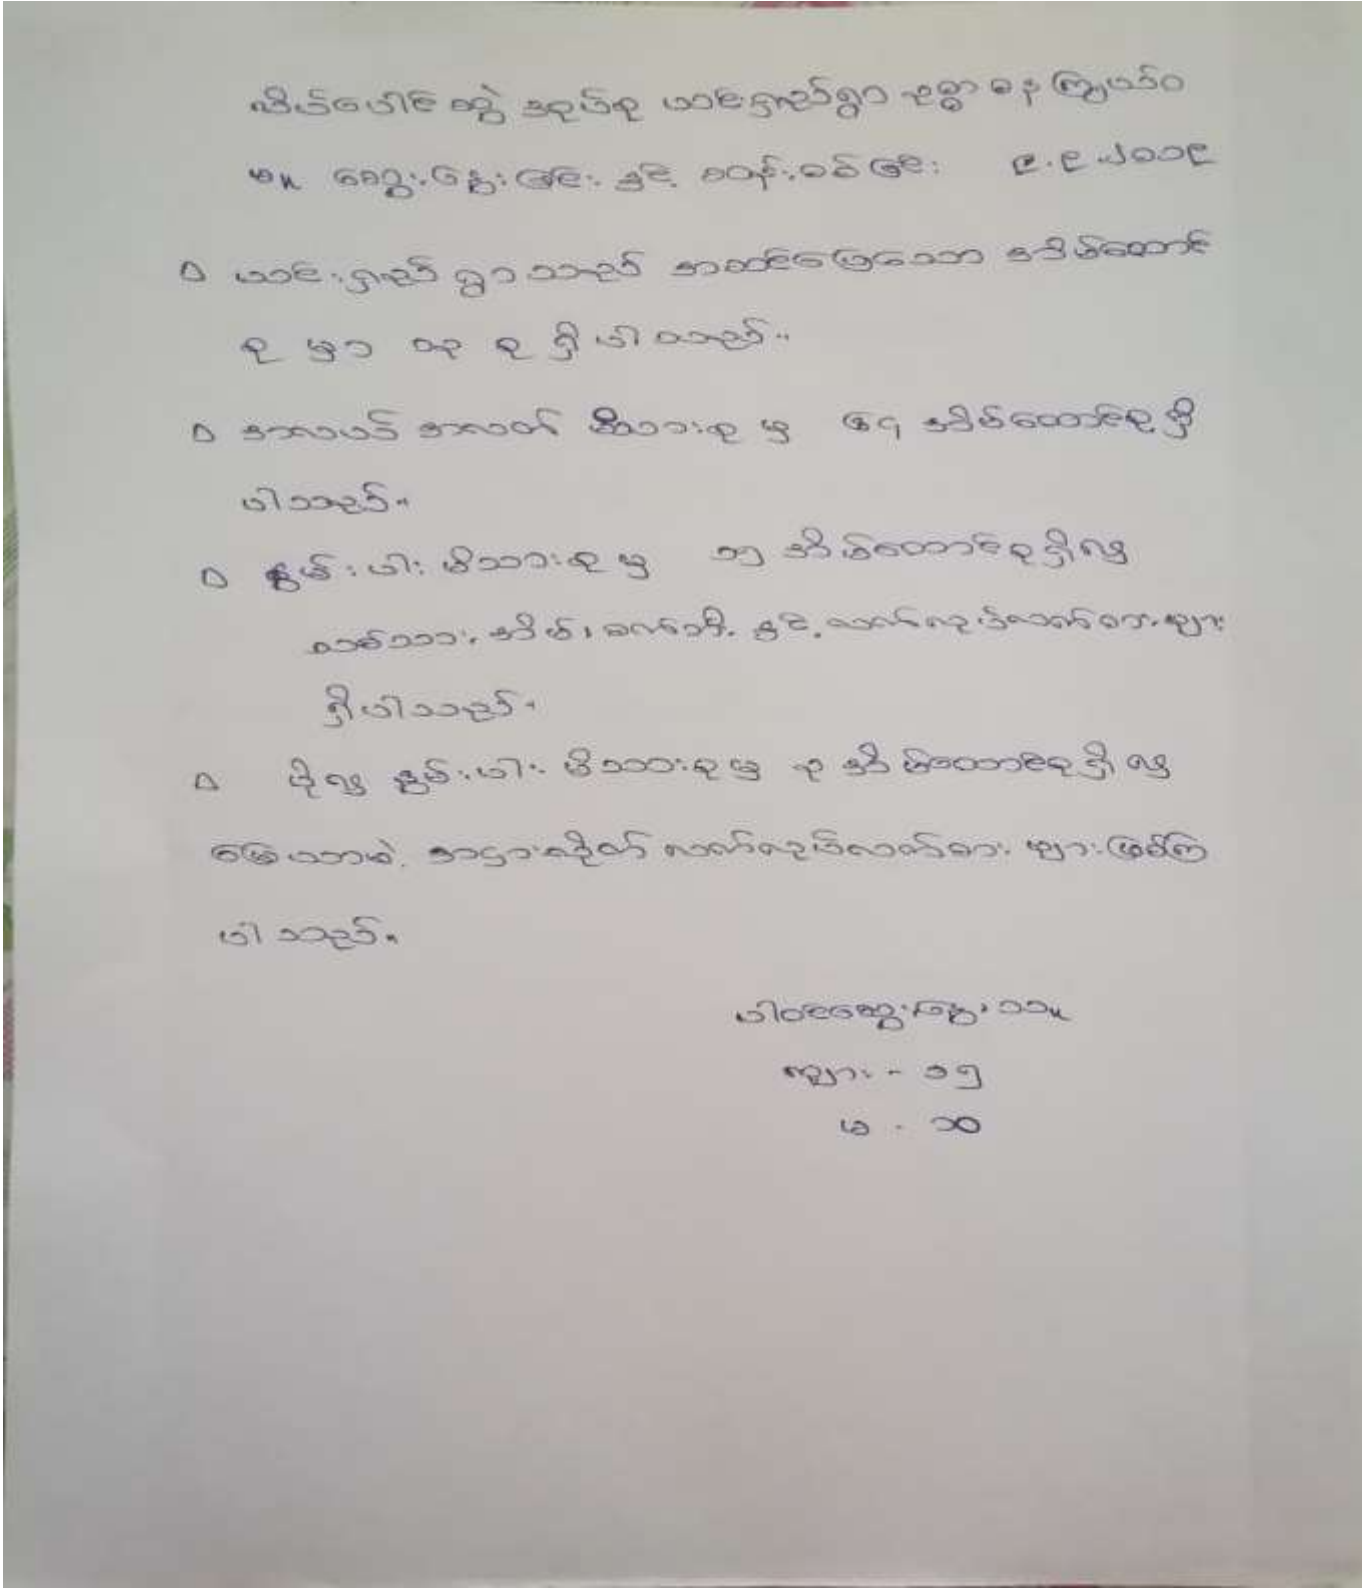 အိမ်ပေါင် တွဲ အုပ်စု ယင်းရှည်ရွာ ဥစ္စာဓန ကြွယ်ဝ
မှု ဆွေးနွေးခြင်း နှင့် စတန်းစစ်ခြင်း ၉.၉.၂၀၁၉
ယင်းရှည် ရွာ သည် အတင်ပြေသော အိမ်ထောင်
စု မှာ ၁၃ စု ရှိ ပါ သည်။
အလယ် အလတ် မိသားစု မှ ၆၄ အိမ်ထောင်စု ရှိ
ပါသည်။
နွမ်းပါး မိသားစု မှ ၁၅ အိမ်ထောင်စုရှိ၍
တစ်သား အိမ်၊ လက်သို့ နှင့် လက်လုပ်လက်စား များ
ရှိပါသည်။
ပို၍ နွမ်းပါး မိသားစု မှ ၃ အိမ်ထောင်စု ရှိ ၍
မြေယာမဲ့ အငှားလိုက် လက်လုပ်လက်စား များ ဖြစ်ကြ
ပါ သည်။
ပါဝင်ဆွေးနွေးသူ
ကျား - ၁၅
မ - ၁၀